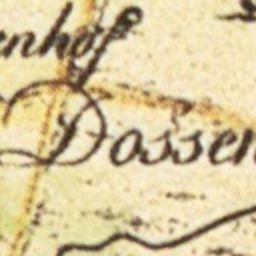 enhof
Dossen